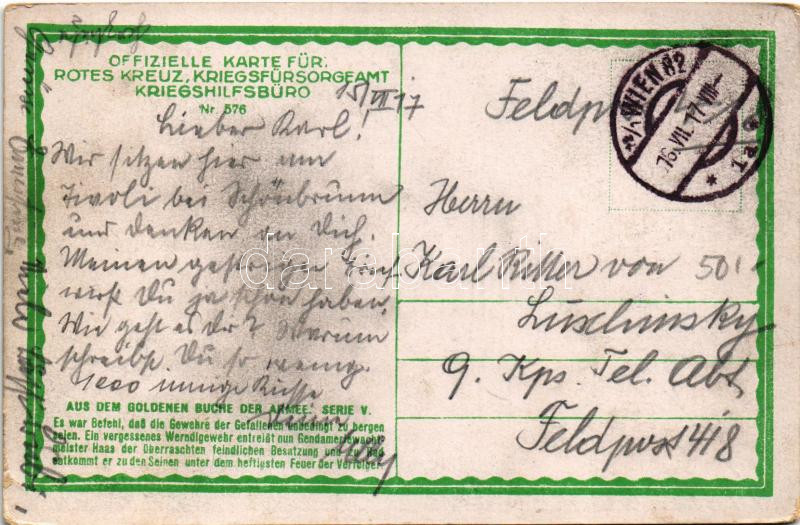 OFFIZIELLE KARTE FÜR:
ROTES KREUZ, KRIEGSFÜRSORGEAMT
KRIEGSHILFSBÜRO
Nr. 576
15/VII 17
Lieber Karl!
Wir sitzen hier am
Tivoli bei Schönbrunn
und denken an Dich.
Meinen gestrigen Brief
wirst Du ja schon haben.
Wie geht es Dir? Warum
schreibst Du so wenig
1000 innige Küsse
AUS DEM GOLDENEN BUCHE DER ARMEE. SERIE V.
Es war Befehl, daß die Gewehre der Gefallenen unbedingt zu bergen
seien. Ein vergessenes Werndlgewehr entreißt nun Gendarmeriewacht-
meister Haas der überraschten feindlichen Besatzung und zu Rad
entkommt er zu den Seinen unter dem heftigsten Feuer der Verfolger.
Feldpost
WIEN 82
16.VII.17 VIII
Herrn
Karl Ritter von
Luschinsky
9. Kps. Tel. Abt.
Feldpost 418
50.-
darabanth